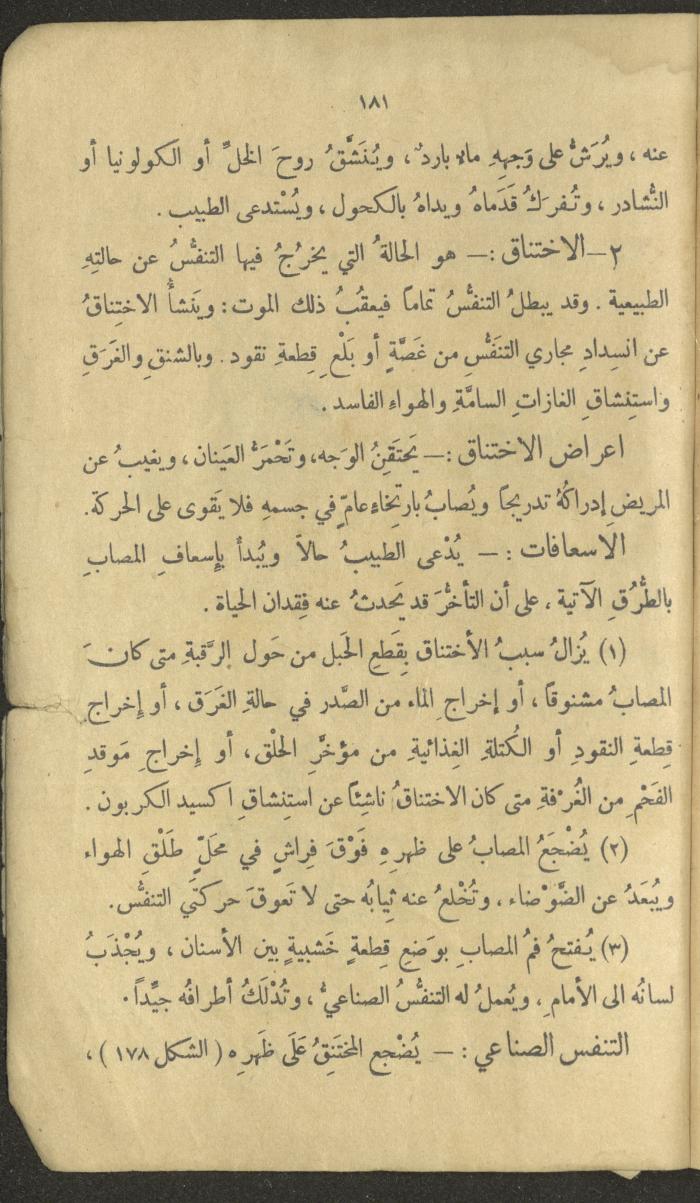 ١٨١
عنه ، ويُرَشُّ على وَجههِ ماءٌ باردٌ ، ويُنَشَّقُ روحَ الخلِّ أو الكولونيا أو
النُّشادر ، وتُفرَكُ قَدَماهُ ويداهُ بالكحول ، ويُسْتدعى الطبيب .
٢ – الاختناق :– هو الحالةُ التي يخرُجُ فيها التنفسُّ عن حالتِهِ
الطبيعية . وقد يبطلُ التنفسُّ تماماً فيعقُبُ ذلك الموت : ويَنشأُ الاختِناقُ
عن انسِدادِ مجاري التنَفُّسِ من غَصَّةٍ أو بَلْعِ قِطعةِ نقود . وبالشنقِ والغَرَقِ
واستِنشاقِ الغازاتِ السامَّةِ والهواءِ الفاسد .
اعراض الاختناق :– يَحتَقِنُ الوَجه، وتَحْمَرُّ العَينان ، ويغيبُ عن
المريضِ إدراكُهُ تدريجاً ويُصابُ بارتِخاءٍ عامّ في جسمهِ فلا يَقوى على الحركة.
الاسعافات : – يُدْعى الطبيبُ حالاً ويُبدأ بإسعافِ المصابِ
بالطُّرُقِ الآتية ، على أن التأخُّرَ قد يَحدثُ عنه فِقدان الحياة .
(١) يُزالُ سببُ الأختناق بِقَطعِ الحَبل من حَول الرَّقبةِ متى كانَ
المصابُ مشنوقاً ، أو إخراجِ الماء من الصَّدر في حالةِ الغَرَق ، أو إِخراجِ
قِطعةِ النقودِ أو الكُتلةِ الغِذائيةِ من مؤخَّرِ الحلْق، أو إِخراجِ مَوقدِ
الفَحْمِ من الغُرْفةِ متى كان الاختناقُ ناشِئاً عن استِنشاقِ اكسيد الكربون .
(٢) يُضْجَعُ المصابُ على ظهرِهِ فَوْقَ فِراشٍ في محَلّ طَلْقِ الهواء
ويُبعَدُ عن الضَّوْضاء ، وتُخْلعُ عنه ثِيابُه حتى لا تَعوقَ حركتَي التنفسُّ.
(٣) يُفتحُ فمُ المصابِ بوَضعِ قِطعةٍ خَشبيةٍ بين الأسنان ، ويُجْذَبُ
لسانُه الى الأمامِ ، ويُعملُ له التنفسُّ الصناعيُّ ، وتُدْلَكُ أطرافُه جيِّداً .
التنفس الصناعي : – يُضْجع المختَنِقُ عَلَى ظَهرِه ( الشكل ١٧٨ ) ،